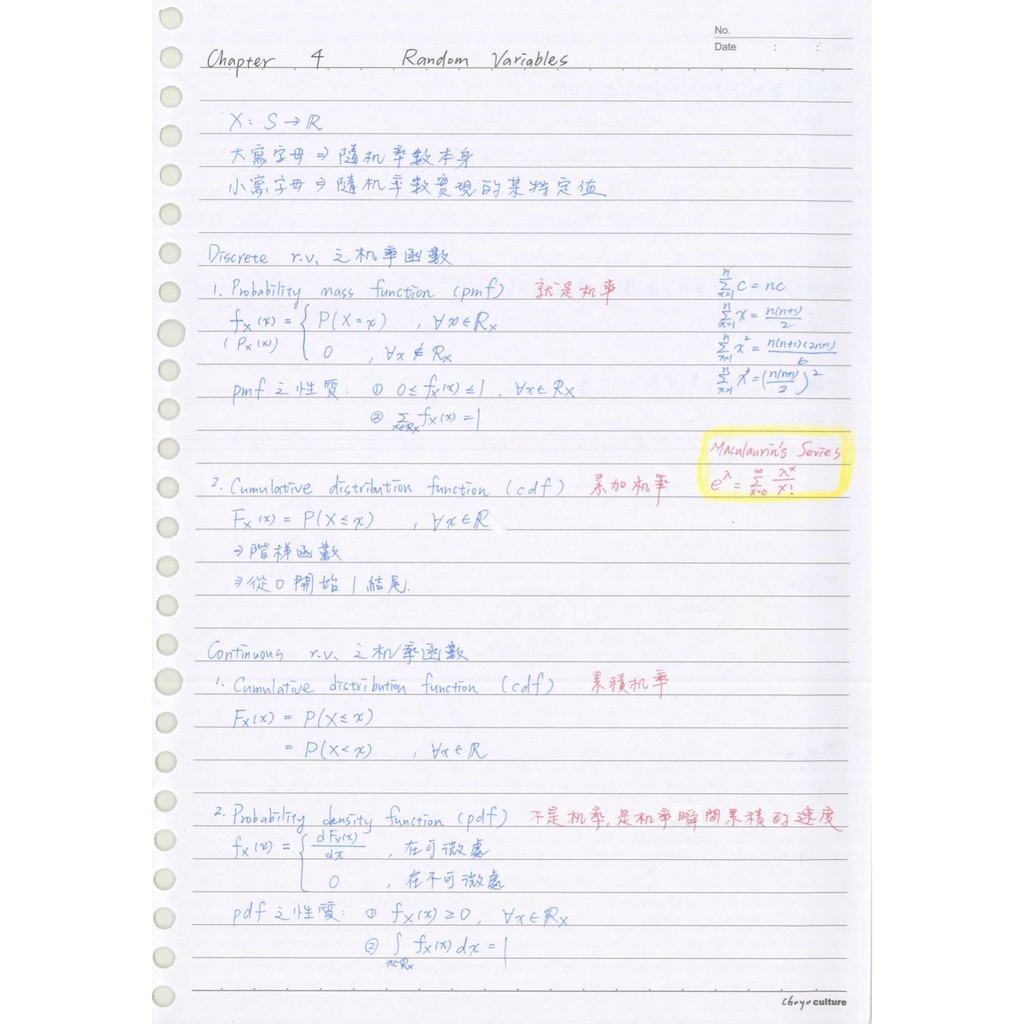 No.
Date : :
Chapter 4 Random Variables
X: S → ℝ
大寫字母 ⇒ 隨机率數本身
小寫字母 ⇒ 隨机率數實現的某特定值
Discrete r.v. 之机率函數
1. Probability mass function (pmf) 就是机率
f_X(x) = { P(X=x) , ∀x∈R_X
(P_X(x)) 0 , ∀x∉R_X
pmf 之性質: ① 0≤f_X(x)≤1 , ∀x∈R_X
② Σ_{x∈R_X} f_X(x) = 1
Σ_{x=1}^{n} c = nc
Σ_{x=1}^{n} x = n(n+1)/2
Σ_{x=1}^{n} x² = n(n+1)(2n+1)/6
Σ_{x=1}^{n} x³ = (n(n+1)/2)²
Maculaurin's Series
e^λ = Σ_{x=0}^{∞} λ^x/x!
2. Cumulative distribution function (cdf) 累加机率
F_X(x) = P(X≤x) , ∀x∈ℝ
⇒ 階梯函數
⇒ 從0開始1結尾.
Continuous r.v. 之机率函數
1. Cumulative distribution function (cdf) 累積机率
F_X(x) = P(X≤x)
= P(X<x) , ∀x∈ℝ
2. Probability density function (pdf) 不是机率,是机率瞬間累積的速度
f_X(x) = { dF_X(x)/dx , 在可微處
0 , 在不可微處
pdf 之性質: ① f_X(x)≥0, ∀x∈R_X
② ∫_{x∈R_X} f_X(x) dx = 1
culture